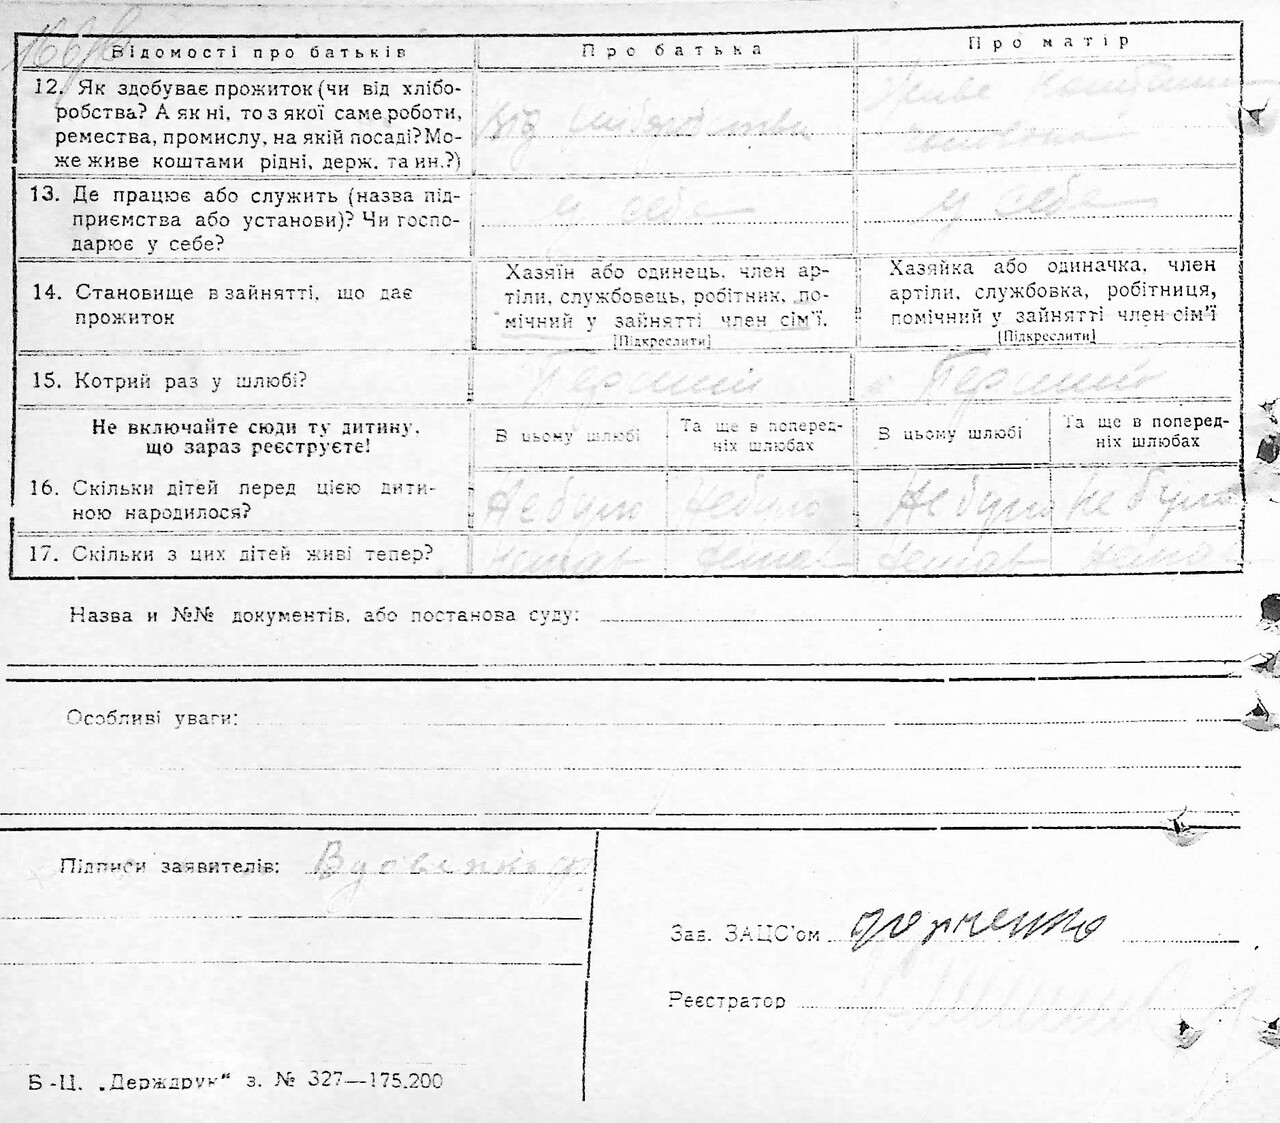 Відомості про батьків
Про батька
Про матір
12. Як здобуває прожиток (чи від хлібо-
робства? А як ні, то з якої саме роботи,
ремества, промислу, на якій посаді? Мо-
же живе коштами рідні, держ. та ин.?)
Від хліборобства
Живе коштами
чоловіка
13. Де працює або служить (назва під-
приємства або установи)? Чи госпо-
дарює у себе?
у себе
у себе
14. Становище в зайнятті, що дає
прожиток
Хазяїн або одинець, член ар-
тіли, службовець, робітник, по-
мічний у зайнятті член сім'ї.
[Підкреслити]
Хазяйка або одиначка, член
артіли, службовка, робітниця,
помічний у зайнятті член сім'ї
[Підкреслити]
15. Котрий раз у шлюбі?
Перший
Перший
Не включайте сюди ту дитину,
що зараз реєструєте!
В цьому шлюбі
Та ще в поперед-
ніх шлюбах
В цьому шлюбі
Та ще в поперед-
ніх шлюбах
16. Скільки дітей перед цією дити-
ною народилося?
Не було
Не було
Не було
Не було
17. Скільки з цих дітей живі тепер?
Немає
Немає
Немає
Немає
Назва и №№ документів, або постанова суду:
Особливі уваги:
Підписи заявителів:
Зав. ЗАЦС'ом
Реєстратор
Б-Ц. „Держдрук“ з. № 327—175.200